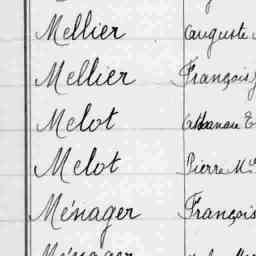 Mellier Auguste
Mellier François
Melot Athanase E
Melot Pierre M
Ménager François
Ménager